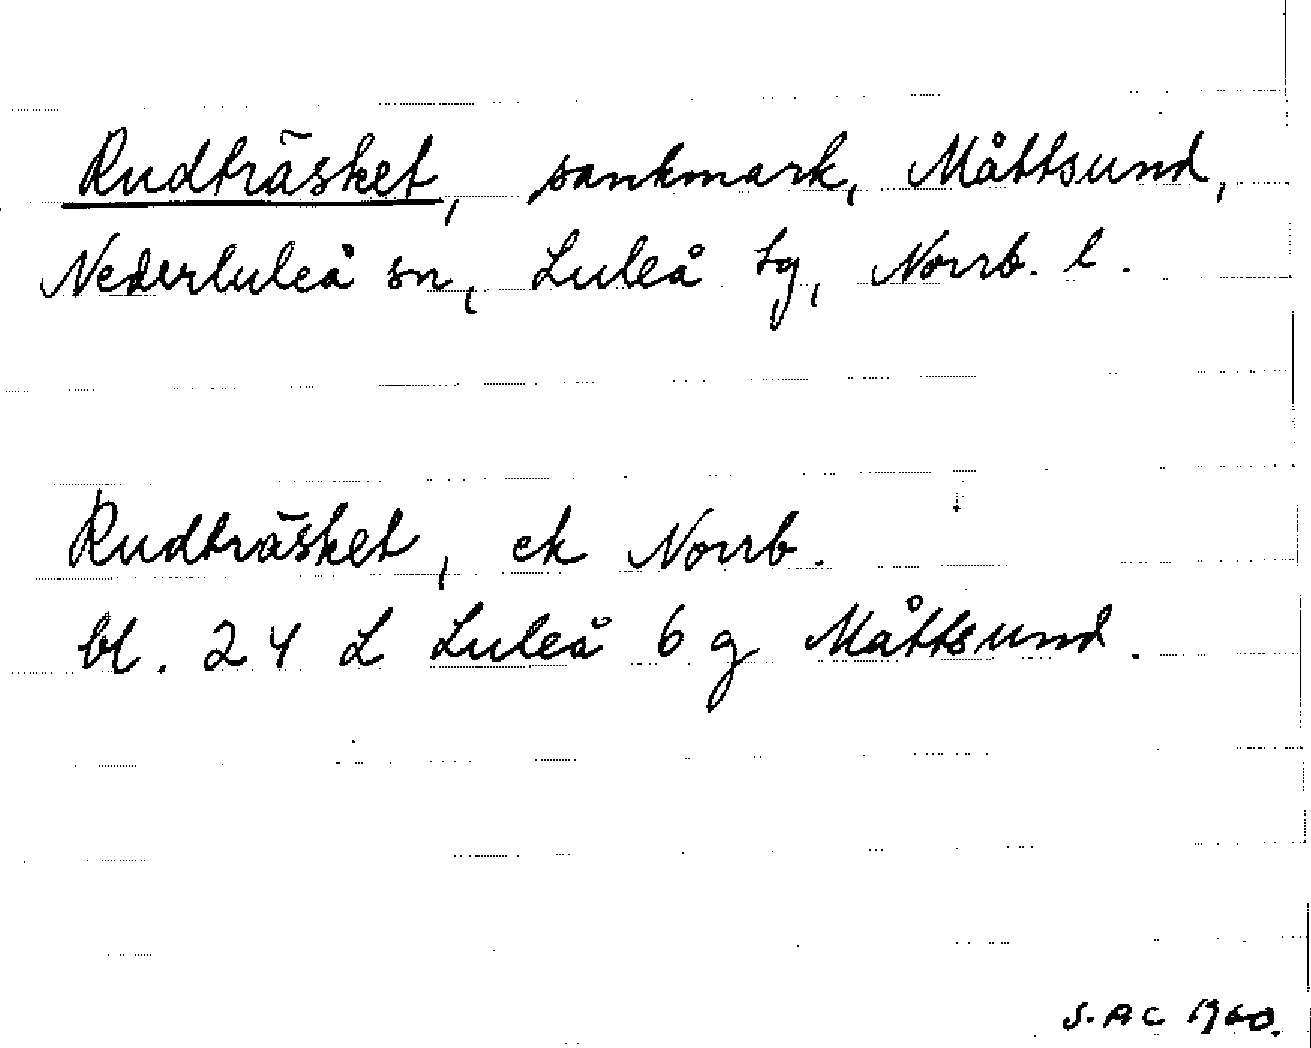 Rudträsket, sankmark, Måttsund,
Nederluleå sn, Luleå tg, Norrb. l.
Rudträsket, ek Norrb.
bl. 24 L Luleå 6 g Måttsund.
S.Ac 1960.